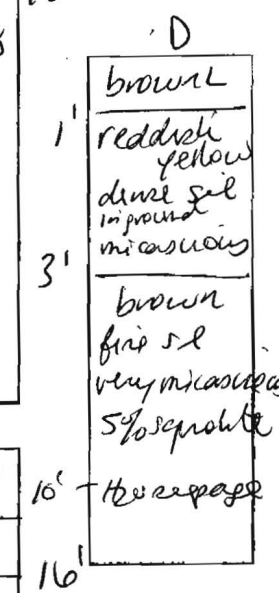 D
brown L
1'
reddish
yellow
dense sil
in ground
micaseious
3'
brown
fine sl
very micaseious
5% saprolite
10' H2O seepage
16'